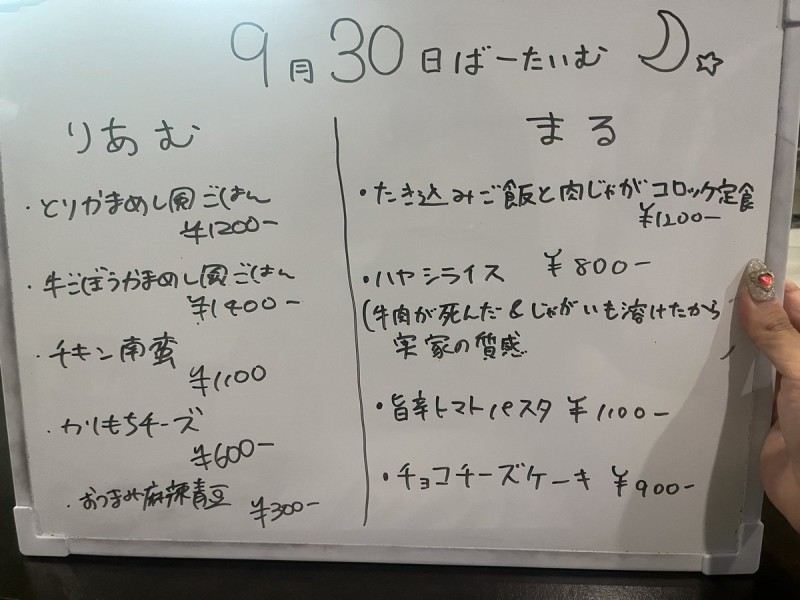 9月30日ばーたいむ
りあむ
・とりかまめし風ごはん
¥1200-
・牛ごぼうかまめし風ごはん
¥1400-
・チキン南蛮
¥1100
・カリもちチーズ
¥600-
・おつまみ麻辣青豆
¥300-
まる
・たき込みご飯と肉じゃがコロッケ定食
¥1200-
・ハヤシライス ¥800-
(牛肉が死んだ&じゃがいも溶けたから
実家の質感
・旨辛トマトパスタ ¥1100-
・チョコチーズケーキ ¥900-